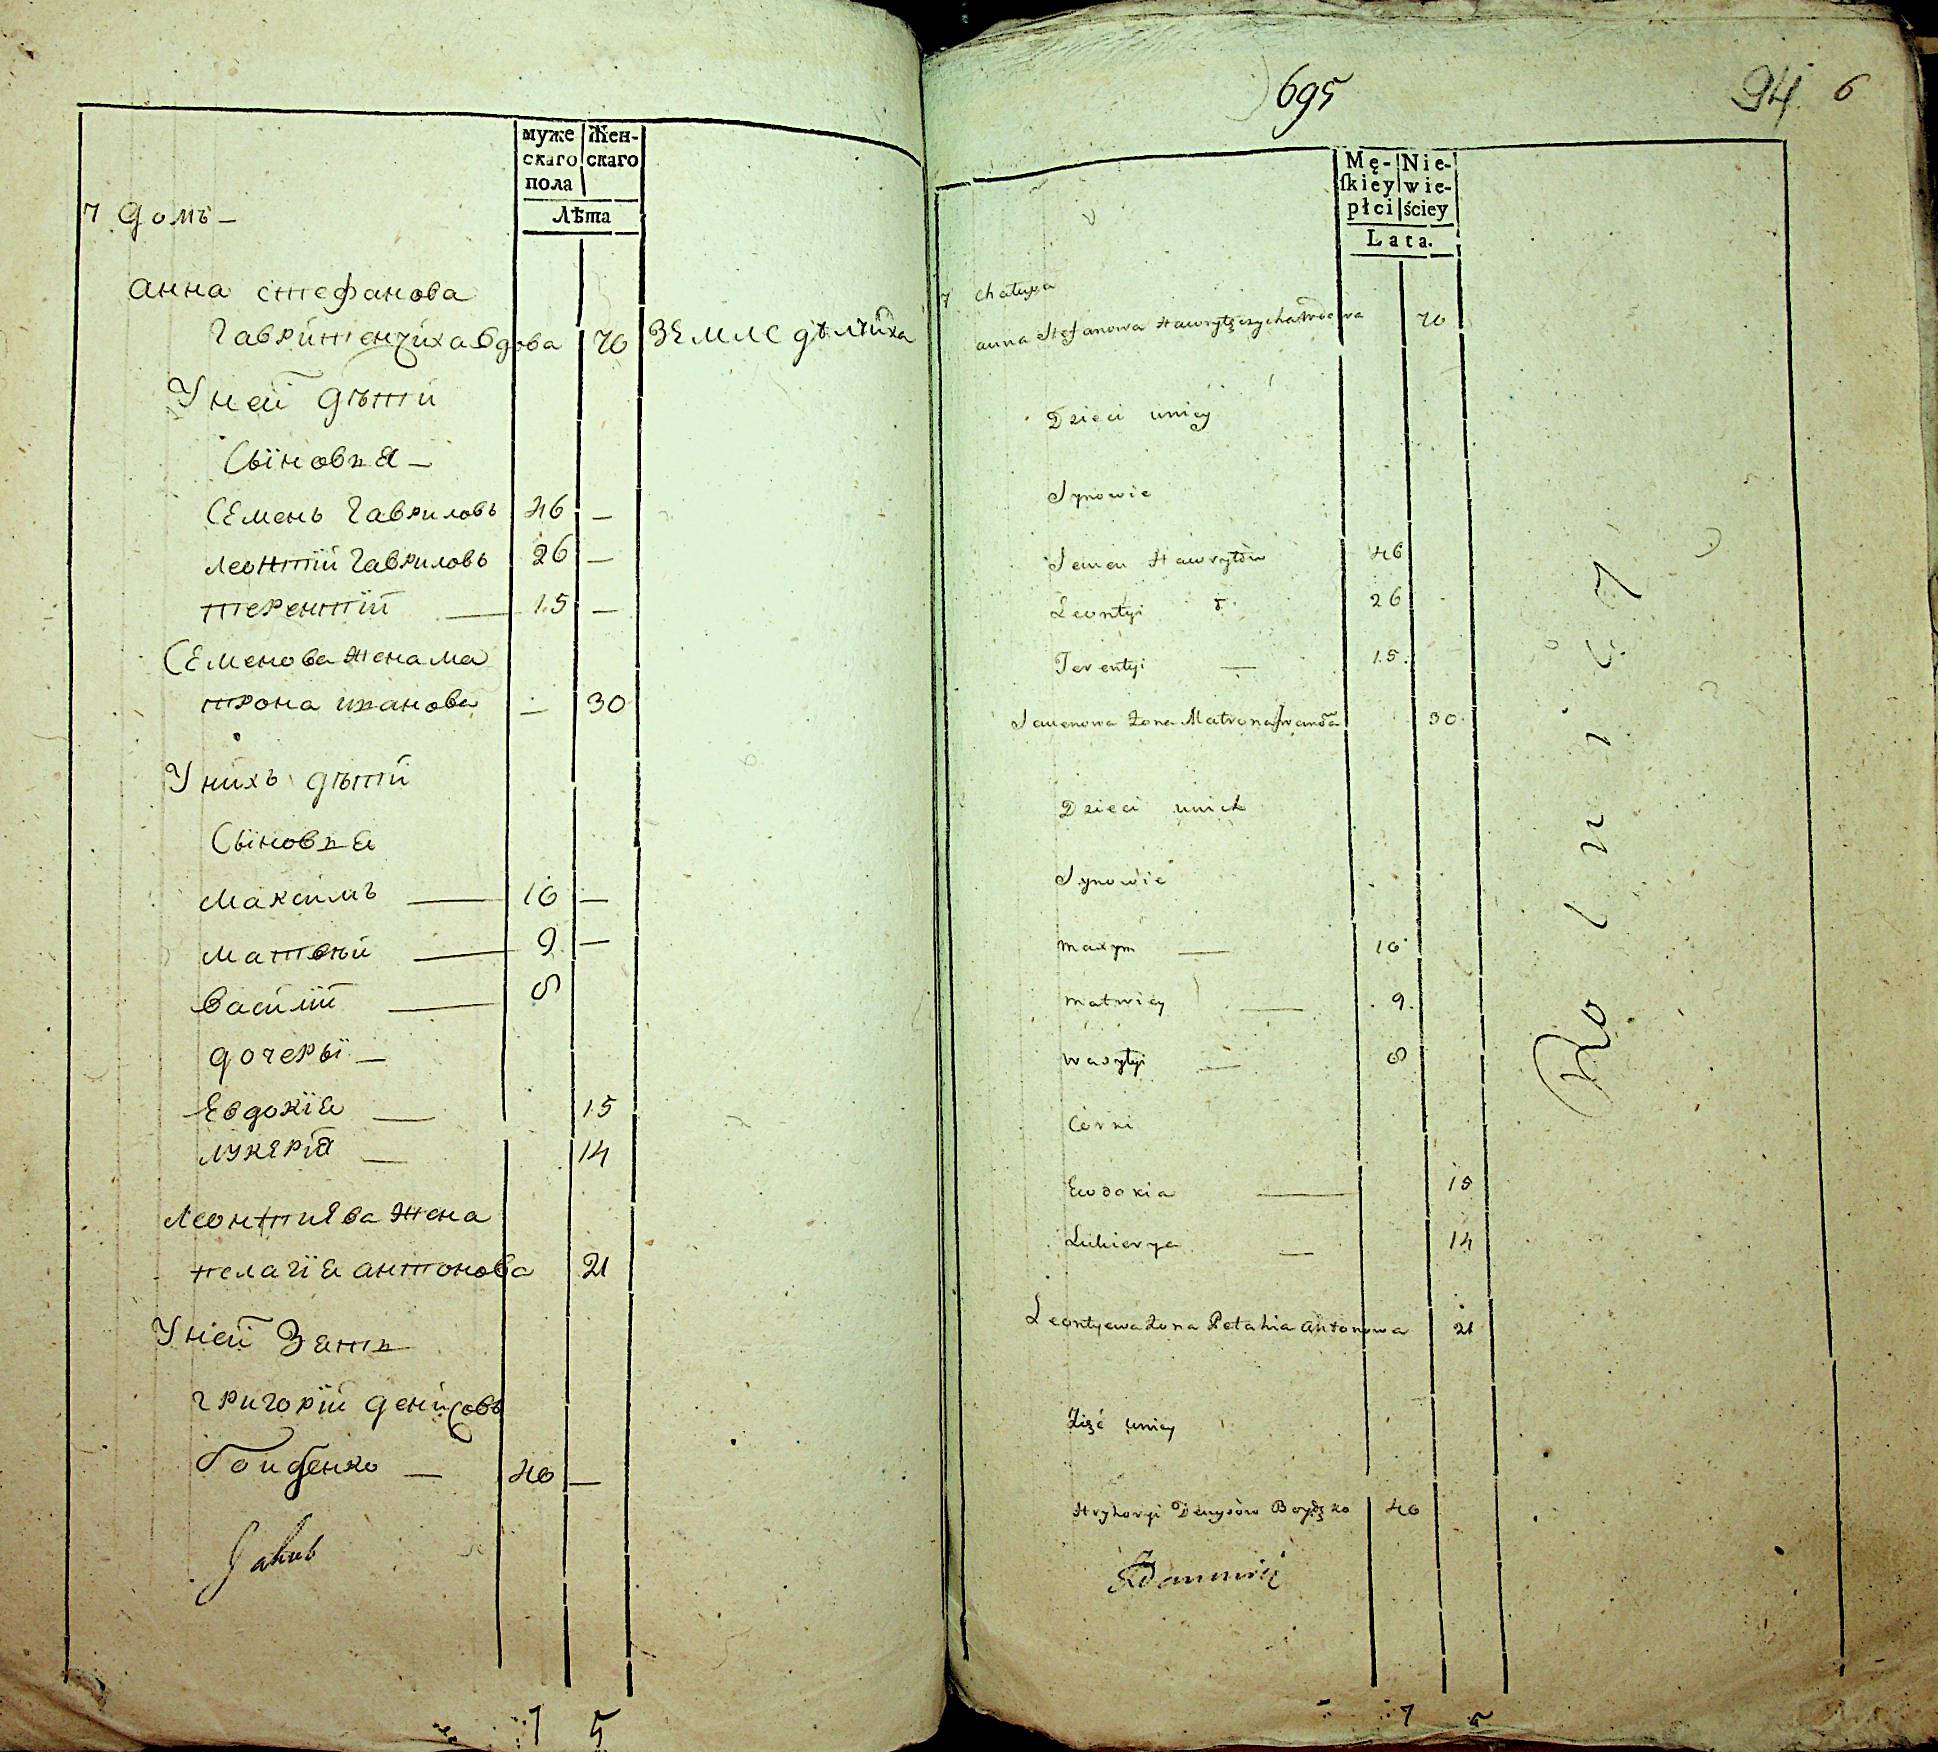 муже скаго пола
Жен- скаго
Лѣта
7 домъ —
анна стефанова
Гаврипенчиха вдова 70 ЗЕМЛЕ дѣлчиха
У ней дѣти
Сыновья —
Семенъ Гавриловъ 46 —
леонтій Гавриловъ 26 —
терентій — 15 —
Семенова жена ма
трона иванова — 30
У нихъ дѣти
Сыновья
Максимъ — 10 —
Матвѣй — 9 —
Василій — 8
дочеры —
Евдокія — 15
лукерія — 14
Леонтиева жена
пелагія антонова 21
У ней Зять
григорій денисовъ
40 —
Jakub
7 5
695
94 6
Mę- skiey płci
Nie- wie- ściey
Lata.
7 chałupa
anna Stefanowa Wdowa 70
Dzieci uniey
Synowie
Semen Hawryłów 46
Leontyi 26
Terentyi — 15.
Semenowa Żona Matrona Iwanowa 30
Dzieci unich
Synowie
Maxym — 10
Matwiey — 9.
Wasylyi — 8
Córki
Ewdokia — 15
Lukierya — 14
Leontyewa żona Pelahia Antonowa 21
Zięć uniey
Hryhoryi Denysów 40
Rolnicy
7 5